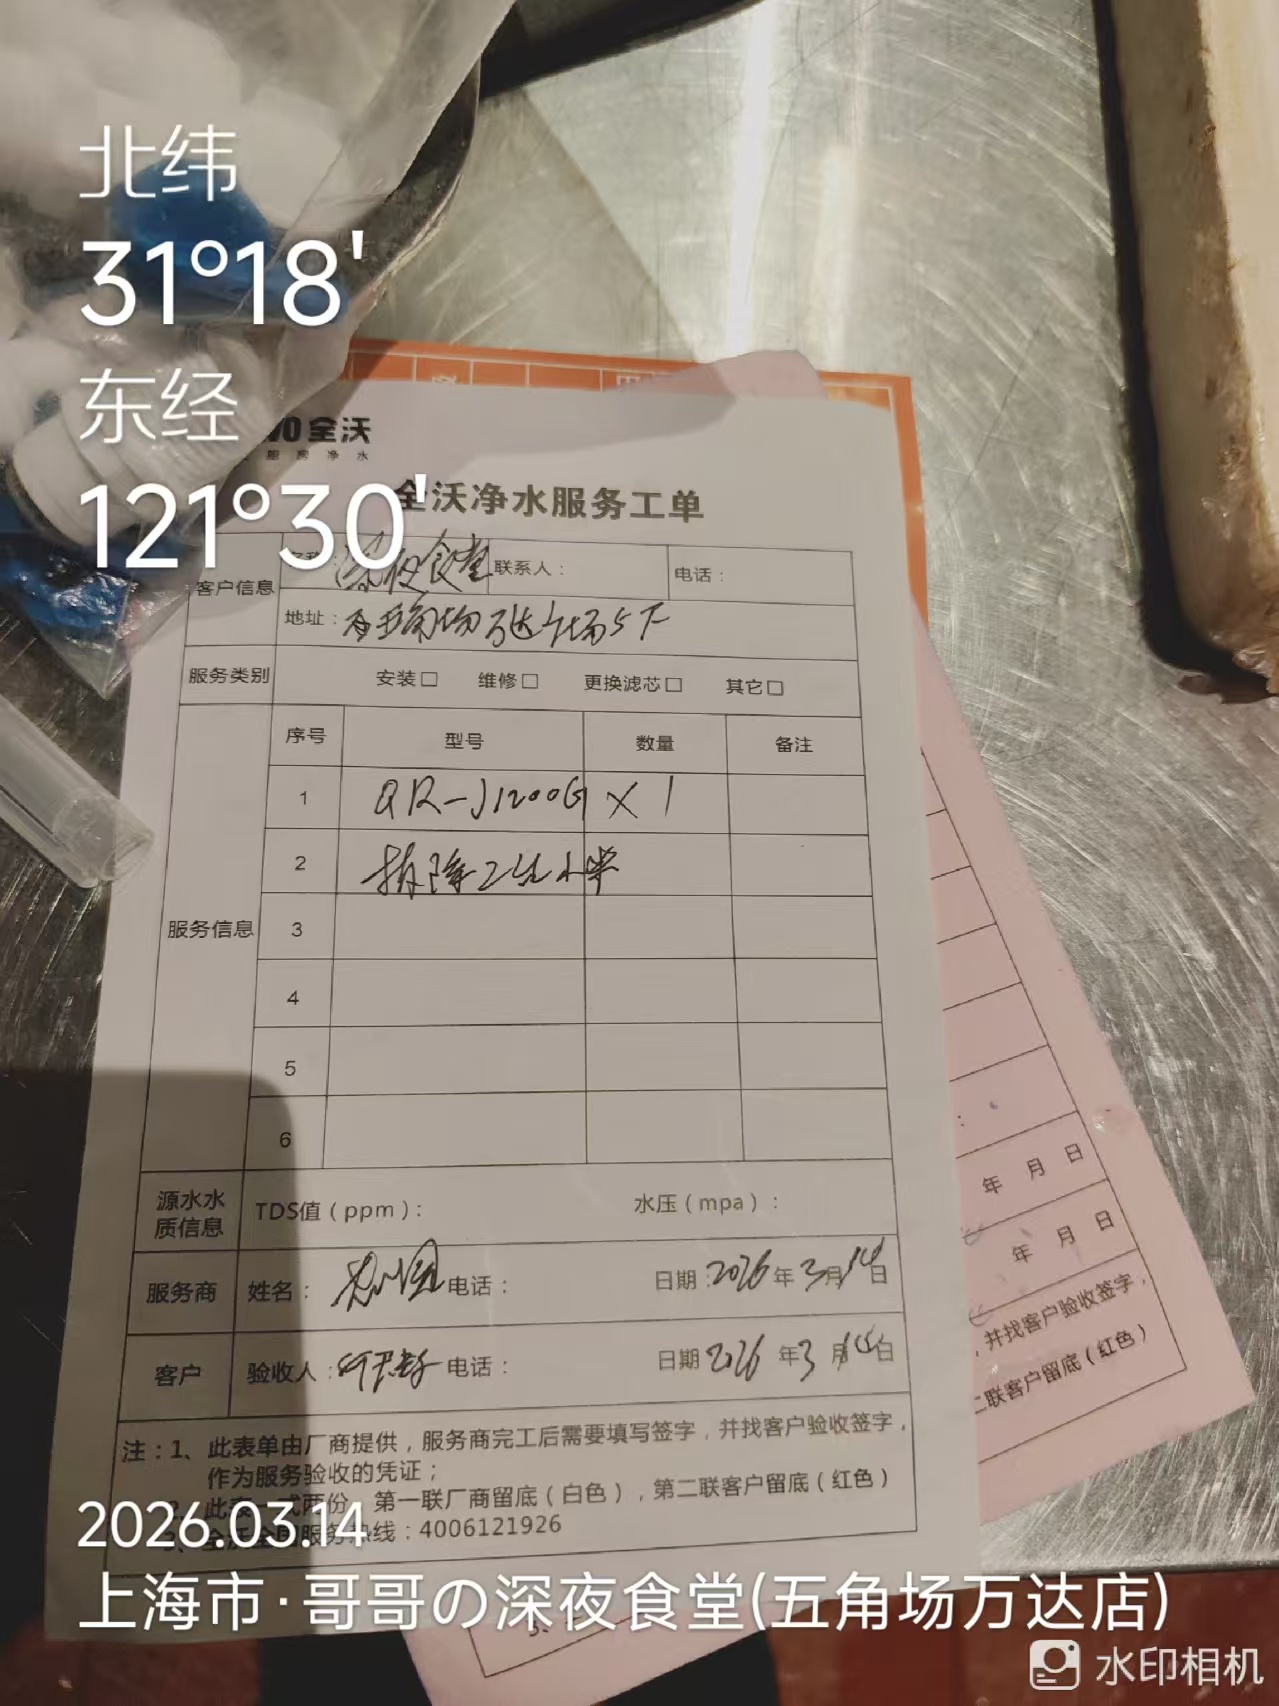 北纬
31°18'
东经
121°30'
VO全沃
厨房净水
全沃净水服务工单
客户信息 名称 深夜食堂 联系人： 电话：
地址： 五角场万达广场5F
服务类别 安装□ 维修□ 更换滤芯□ 其它□
服务信息 序号 型号 数量 备注
1 QR-J1200G X 1
2 拆除
3
4
5
6
源水水质信息 TDS值（ppm）： 水压（mpa）：
服务商 姓名： 电话： 日期：2026年3月14日
客户 验收人： 电话： 日期 2026年3月14日
注：1、此表单由厂商提供，服务商完工后需要填写签字，并找客户验收签字，
作为服务验收的凭证；
2、此表一式两份，第一联厂商留底（白色），第二联客户留底（红色）
3、全沃全国服务热线：4006121926
年 月 日
年 月 日
，并找客户验收签字，
二联客户留底（红色）
3、
2026.03.14
上海市·哥哥の深夜食堂(五角场万达店)
水印相机